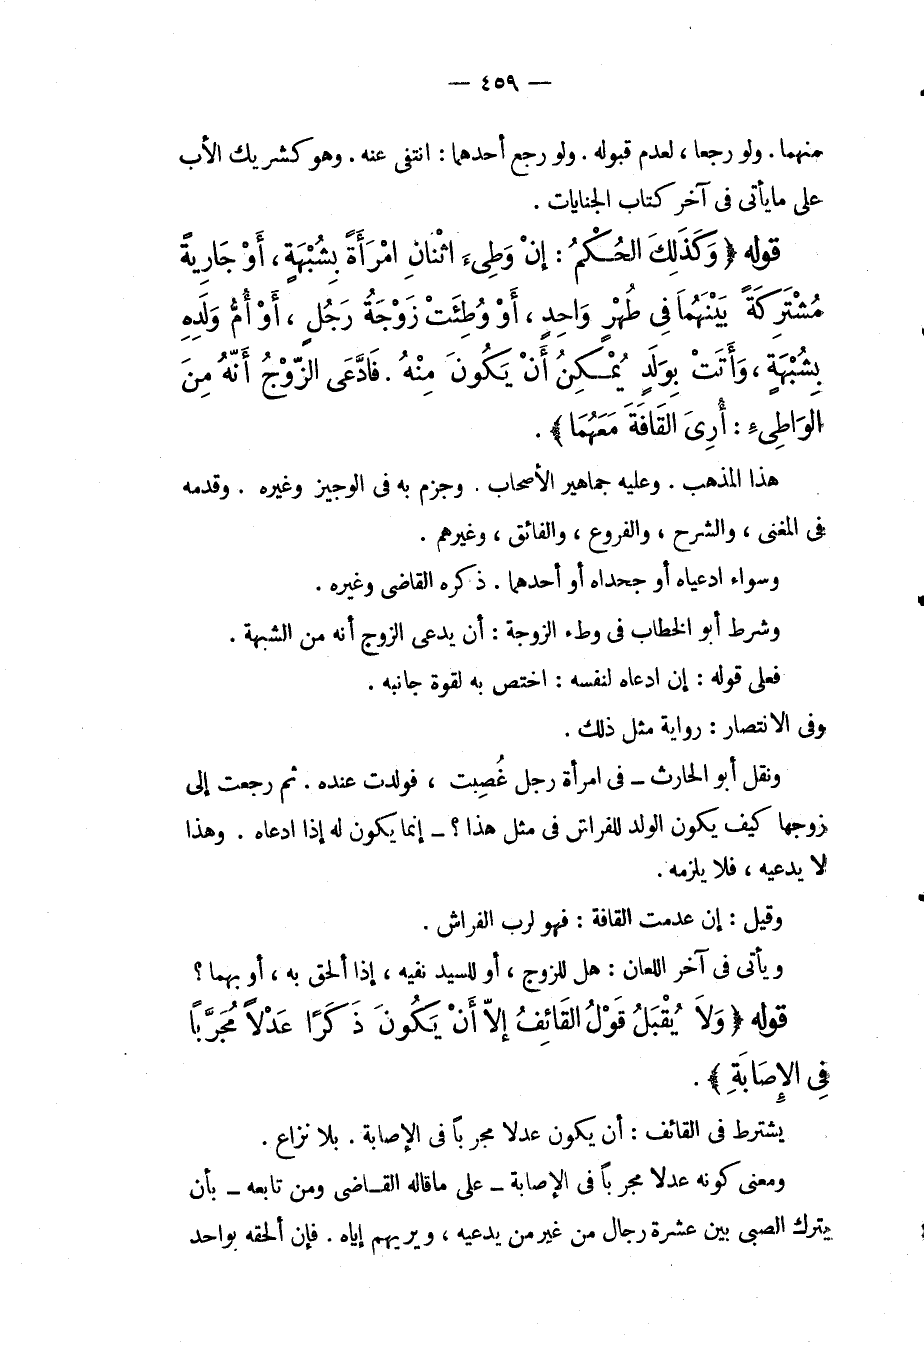 — ٤٥٩ —
منهما . ولو رجعا ، لعدم قبوله . ولو رجع أحدهما : انتفى عنه . وهو كشريك الأب
على مايأتى فى آخر كتاب الجنايات .
قوله ﴿ وَكَذَلِكَ الحُكْمُ : إنْ وَطِىءَ اثْنَانِ امْرَأَةً بِشُبْهَةٍ ، أَوْ جَارِيةً
مُشْتَرِكَةً بَيْنَهُمَا فِى طُهْرٍ وَاحِدٍ ، أَوْ وُطِئَتْ زَوْجَةُ رَجُلٍ ، أَوْ أُمُّ وَلَدِهِ
بِشُبْهَةٍ ، وَأَتَتْ بِوَلَدٍ يُمْكِنُ أَنْ يَكُونَ مِنْهُ . فَادَّعَى الزَّوْجُ أَنَّهُ مِنَ
الوَاطِىءِ : أُرِىَ القَافَةَ مَعَهُمَا ﴾ .
هذا المذهب . وعليه جماهير الأصحاب . وجزم به فى الوجيز وغيره . وقدمه
فى المغنى ، والشرح ، والفروع ، والفائق ، وغيرهم .
وسواء ادعياه أو جحداه أو أحدهما . ذكره القاضى وغيره .
وشرط أبو الخطاب فى وطء الزوجة : أن يدعى الزوج أنه من الشبهة .
فعلى قوله : إن ادعاه لنفسه : اختص به لقوة جانبه .
وفى الانتصار : رواية مثل ذلك .
ونقل أبو الحارث ــ فى امرأة رجل غُصِبت ، فولدت عنده . ثم رجعت إلى
زوجها كيف يكون الولد للفراش فى مثل هذا ؟ ــ إنما يكون له إذا ادعاه . وهذا
لا يدعيه ، فلا يلزمه .
وقيل : إن عدمت القافة : فهو لرب الفراش .
ويأتى فى آخر اللعان : هل للزوج ، أو للسيد نفيه ، إذا ألحق به ، أو بهما ؟
قوله ﴿ وَلاَ يُقْبَلُ قَوْلُ القَائِفُ إلاَّ أَنْ يَكُونَ ذَكَرًا عَدْلاً مُجَرَّباً
فِى الإِصَابَةِ ﴾ .
يشترط فى القائف : أن يكون عدلا مجرباً فى الإصابة . بلا نزاع .
ومعنى كونه عدلا مجرباً فى الإصابة ــ على ماقاله القـاضى ومن تابعه ــ بأن
يترك الصبى بين عشرة رجال من غير من يدعيه ، ويريهم إياه . فإن ألحقه بواحد